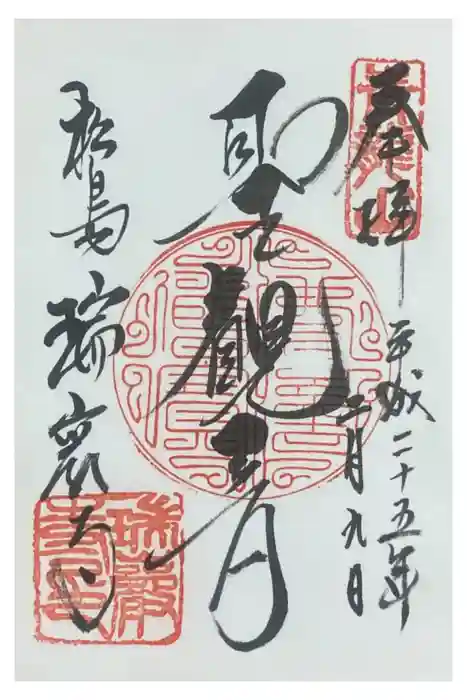 奉拝
平成二十五年
二月九日
聖觀音
松島
瑞巌寺
瑞巖